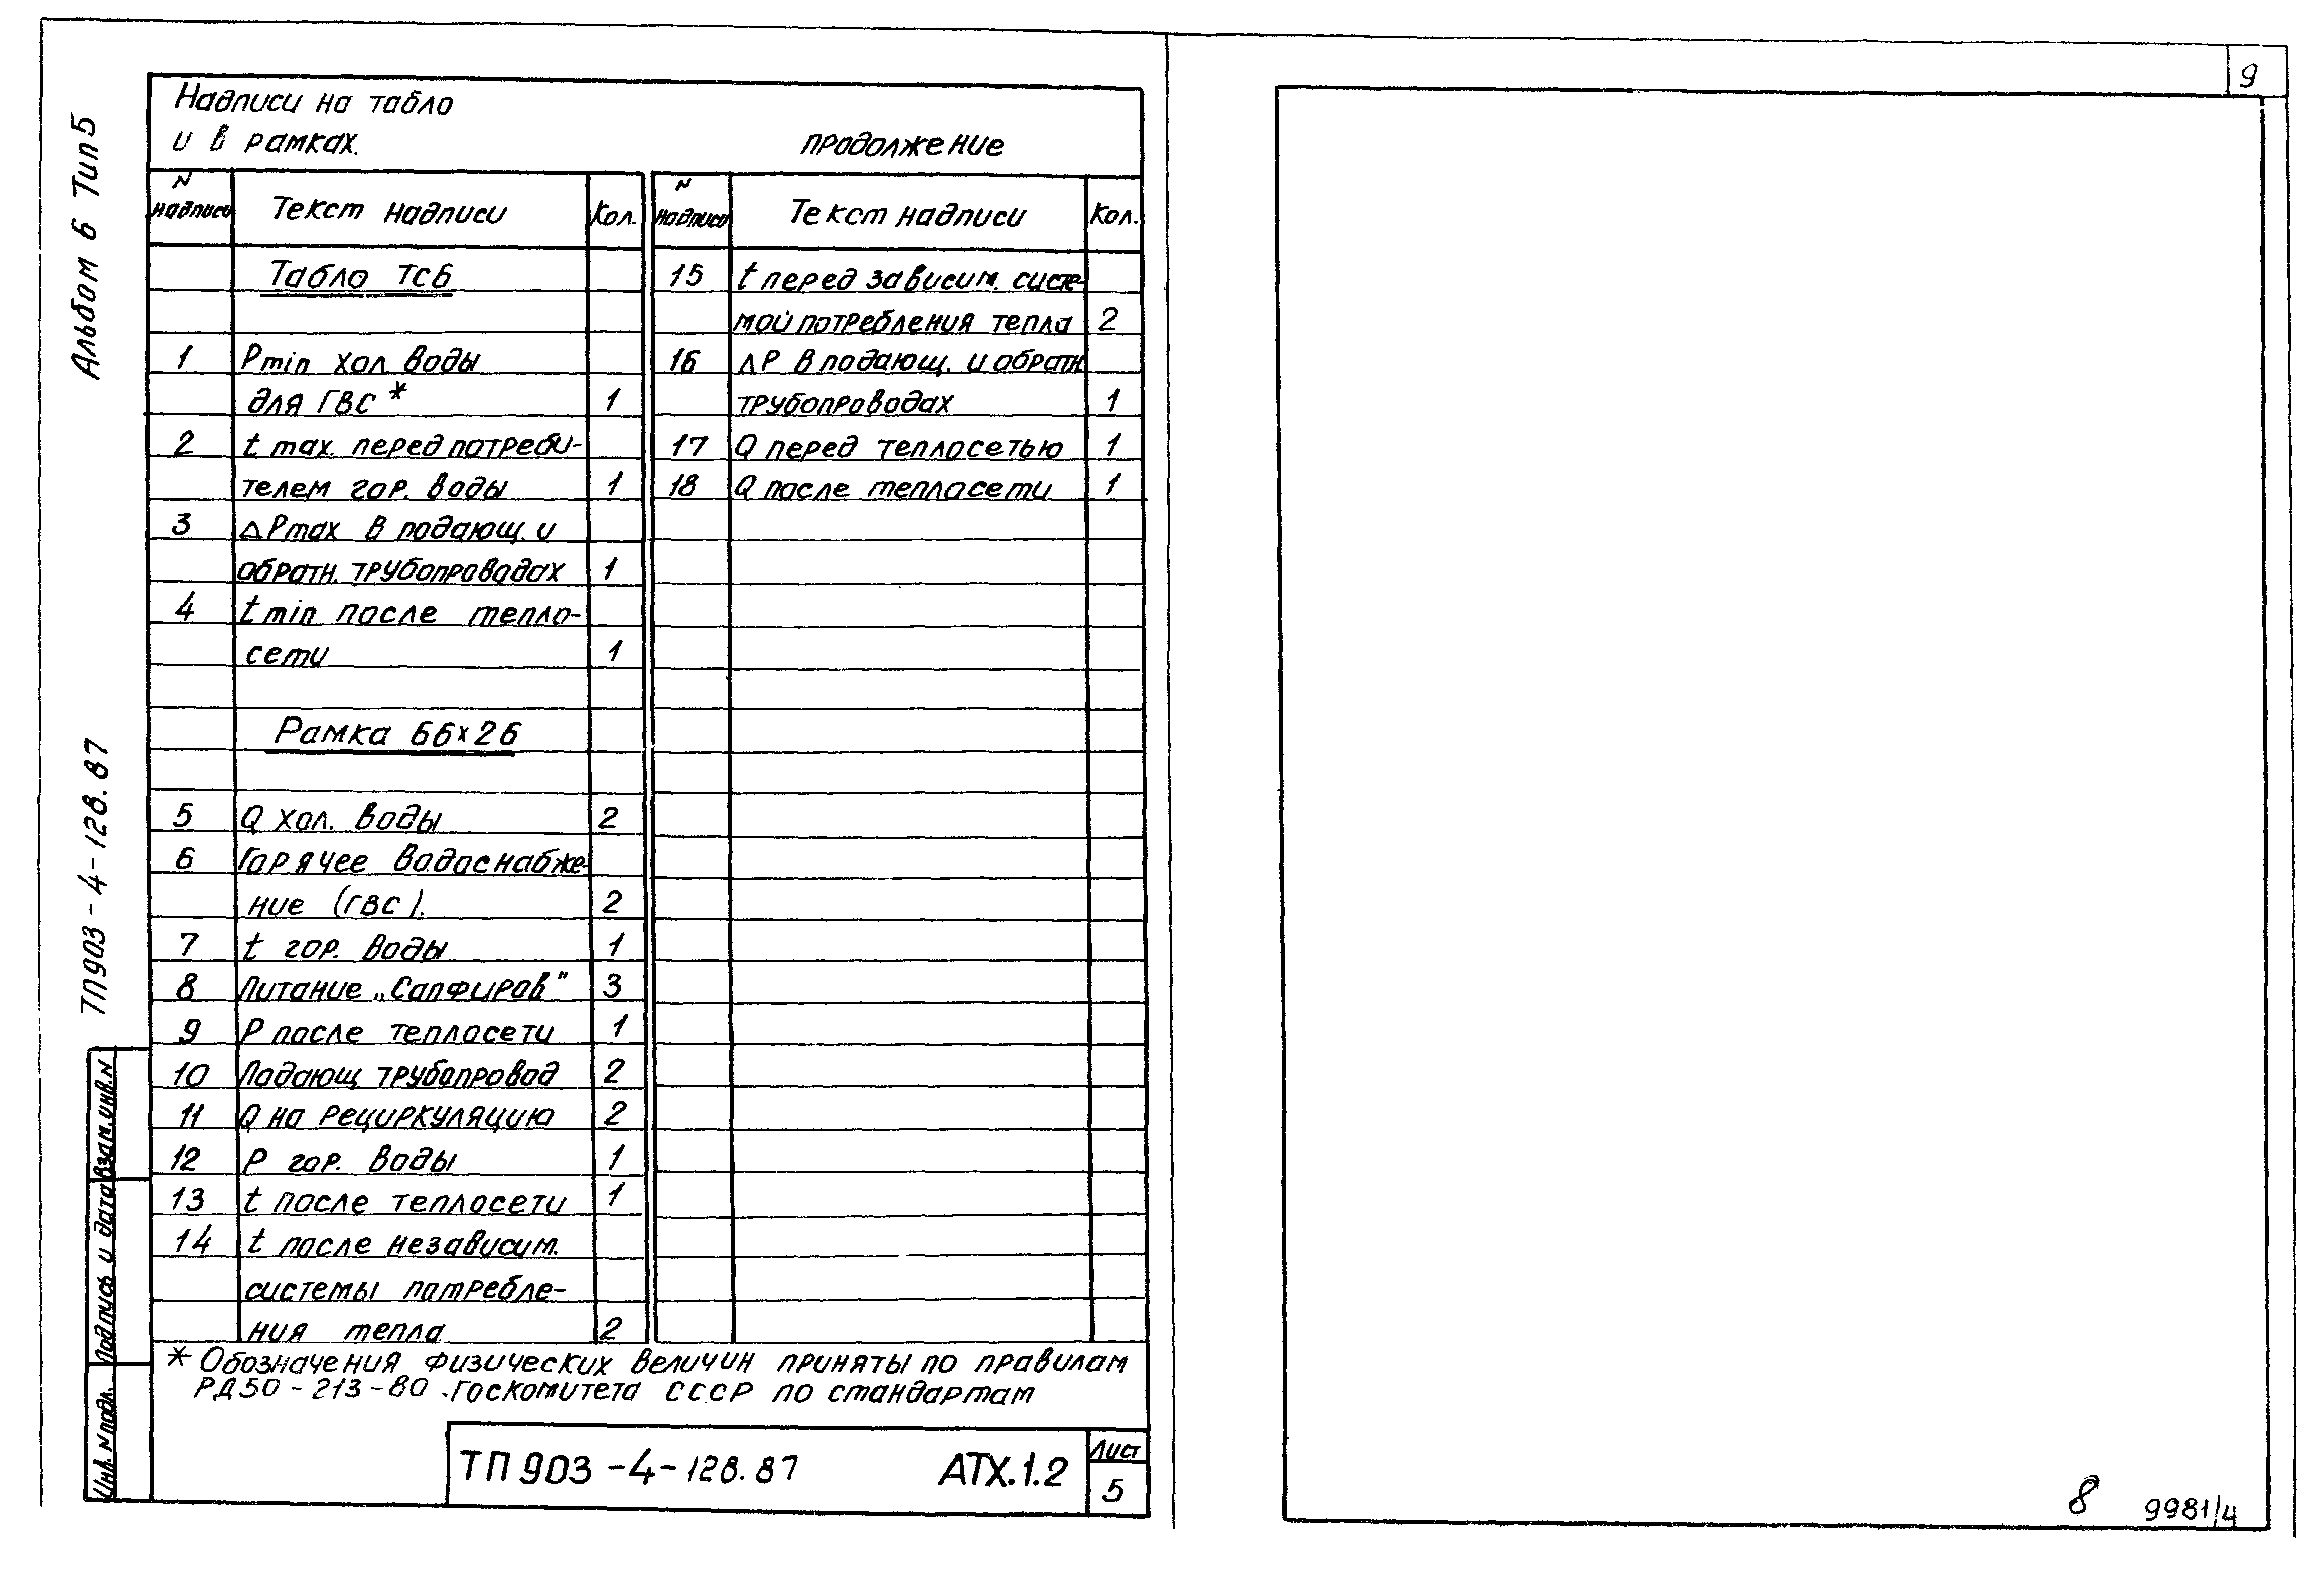 9
Альбом 6 Тип 5
ТП903-4-128.87
Надписи на табло
и в рамках.
продолжение
N надписи Текст надписи Кол.
Табло ТСБ
1 Pmin хол. воды
для ГВС * 1
2 t max. перед потреби-
телем гор. воды 1
3 ΔPmax в подающ. и
обратн. трубопроводах 1
4 tmin после тепло-
сети 1
Рамка 66×26
5 Q хол. воды 2
6 Горячее водоснабже-
ние (ГВС). 2
7 t гор. воды 1
8 Питание „Сапфиров" 3
9 P после теплосети 1
10 Подающ трубопровод 2
11 Q на рециркуляцию 2
12 P гор. воды 1
13 t после теплосети 1
14 t после независим.
системы потребле-
ния тепла 2
N надписи Текст надписи Кол.
15 t перед зависим. систе-
мой потребления тепла 2
16 ΔP в подающ. и обратн.
трубопроводах 1
17 Q перед теплосетью 1
18 Q после теплосети 1
* Обозначения физических величин приняты по правилам
РД50-213-80 Госкомитета СССР по стандартам
ТП 903-4-128.87 АТХ.1.2
Лист
5
Взам. инв. N
Подпись и дата
Инв. N подл.
8 9981/4